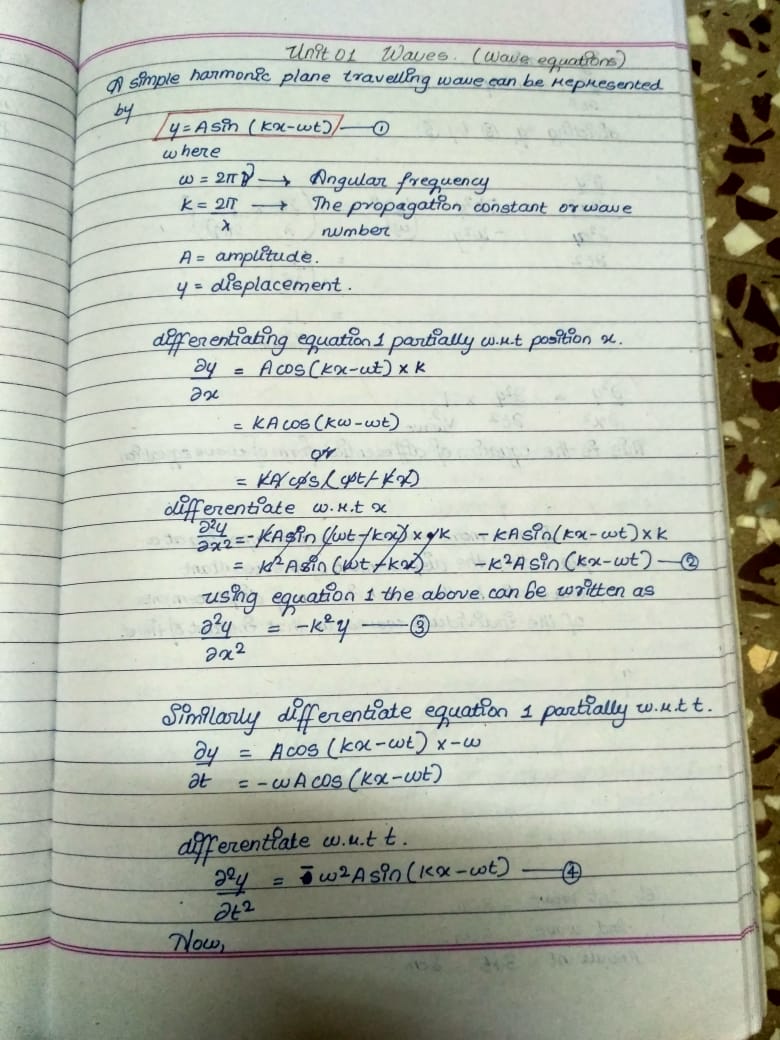 Unit 01 Waves. (wave equations)
A simple harmonic plane travelling wave can be represented
by
y = A sin (kx-ωt) — ①
where
ω = 2πν → Angular frequency
k = 2π/λ → The propagation constant or wave
number
A = amplitude.
y = displacement.
differentiating equation 1 partially w.r.t position x.
∂y/∂x = A cos (kx-ωt) x k
= KA cos (kω-ωt)
or
= KA cos (ωt-kx)
differentiate w.r.t x
∂²y/∂x² = -KA sin (ωt-kx) x -k - KA sin (kx-ωt) x k
= k²A sin (ωt-kx) -k²A sin (kx-ωt) — ②
using equation 1 the above can be written as
∂²y/∂x² = -k²y — ③
Similarly differentiate equation 1 partially w.r.t t.
∂y/∂t = A cos (kx-ωt) x -ω
= -ωA cos (kx-ωt)
differentiate w.r.t t.
∂²y/∂t² = - ω²A sin (kx-ωt) — ④
Now,